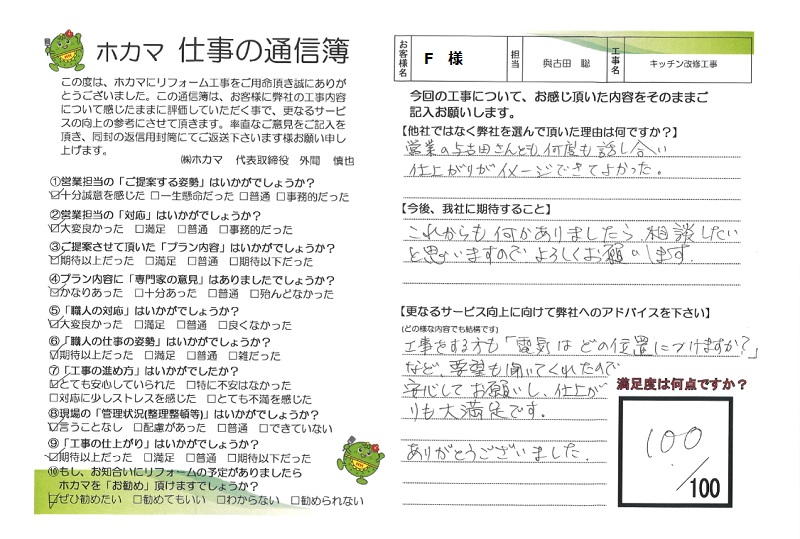 ホカマ 仕事の通信簿
この度は、ホカマにリフォーム工事をご用命頂き誠にありが
とうございました。この通信簿は、お客様に弊社の工事内容
について感じたままに評価していただく事で、更なるサービ
スの向上の参考にさせて頂きます。率直なご意見をご記入を
頂き、同封の返信用封筒にてご返送下さいます様お願い申し
上げます。
㈱ホカマ 代表取締役 外間 慎也
①営業担当の「ご提案する姿勢」はいかがでしょうか?
☑十分誠意を感じた □一生懸命だった □普通 □事務的だった
②営業担当の「対応」はいかがでしょうか?
☑大変良かった □満足 □普通 □事務的だった
③ご提案させて頂いた「プラン内容」はいかがでしょうか?
☑期待以上だった □満足 □普通 □期待以下だった
④プラン内容に「専門家の意見」はありましたでしょうか?
☑かなりあった □十分あった □普通 □殆んどなかった
⑤「職人の対応」はいかがでしょうか?
☑大変良かった □満足 □普通 □良くなかった
⑥「職人の仕事の姿勢」はいかがでしょうか?
☑期待以上だった □満足 □普通 □雑だった
⑦「工事の進め方」はいかがでしたか?
☑とても安心していられた □特に不安はなかった
□対応に少しストレスを感じた □とても不満を感じた
⑧現場の「管理状況(整理整頓等)」はいかがでしょうか?
☑言うことなし □配慮があった □普通 □できていない
⑨「工事の仕上がり」はいかがでしょうか?
☑期待以上だった □満足 □普通 □期待以下だった
⑩もし、お知合いにリフォームの予定がありましたら
ホカマを「お勧め」頂けますでしょうか?
☑ぜひ勧めたい □勧めてもいい □わからない □勧められない
お客様名 F 様 担当 與古田 聡 工事名 キッチン改修工事
今回の工事について、お感じ頂いた内容をそのままご
記入お願いします。
【他社ではなく弊社を選んで頂いた理由は何ですか?】
営業の与古田さんとも何度も話し合い
仕上がりがイメージできてよかった。
【今後、我社に期待すること】
これからも何かありましたら、相談したい
と思いますのでよろしくお願いします
【更なるサービス向上に向けて弊社へのアドバイスを下さい】
(どの様な内容でも結構です)
工事をする方も「電気はどの位置につけますか?」
など、要望も聞いてくれたので
安心してお願いし、仕上が
りも大満足です。
ありがとうございました.
満足度は何点ですか?
100
/100